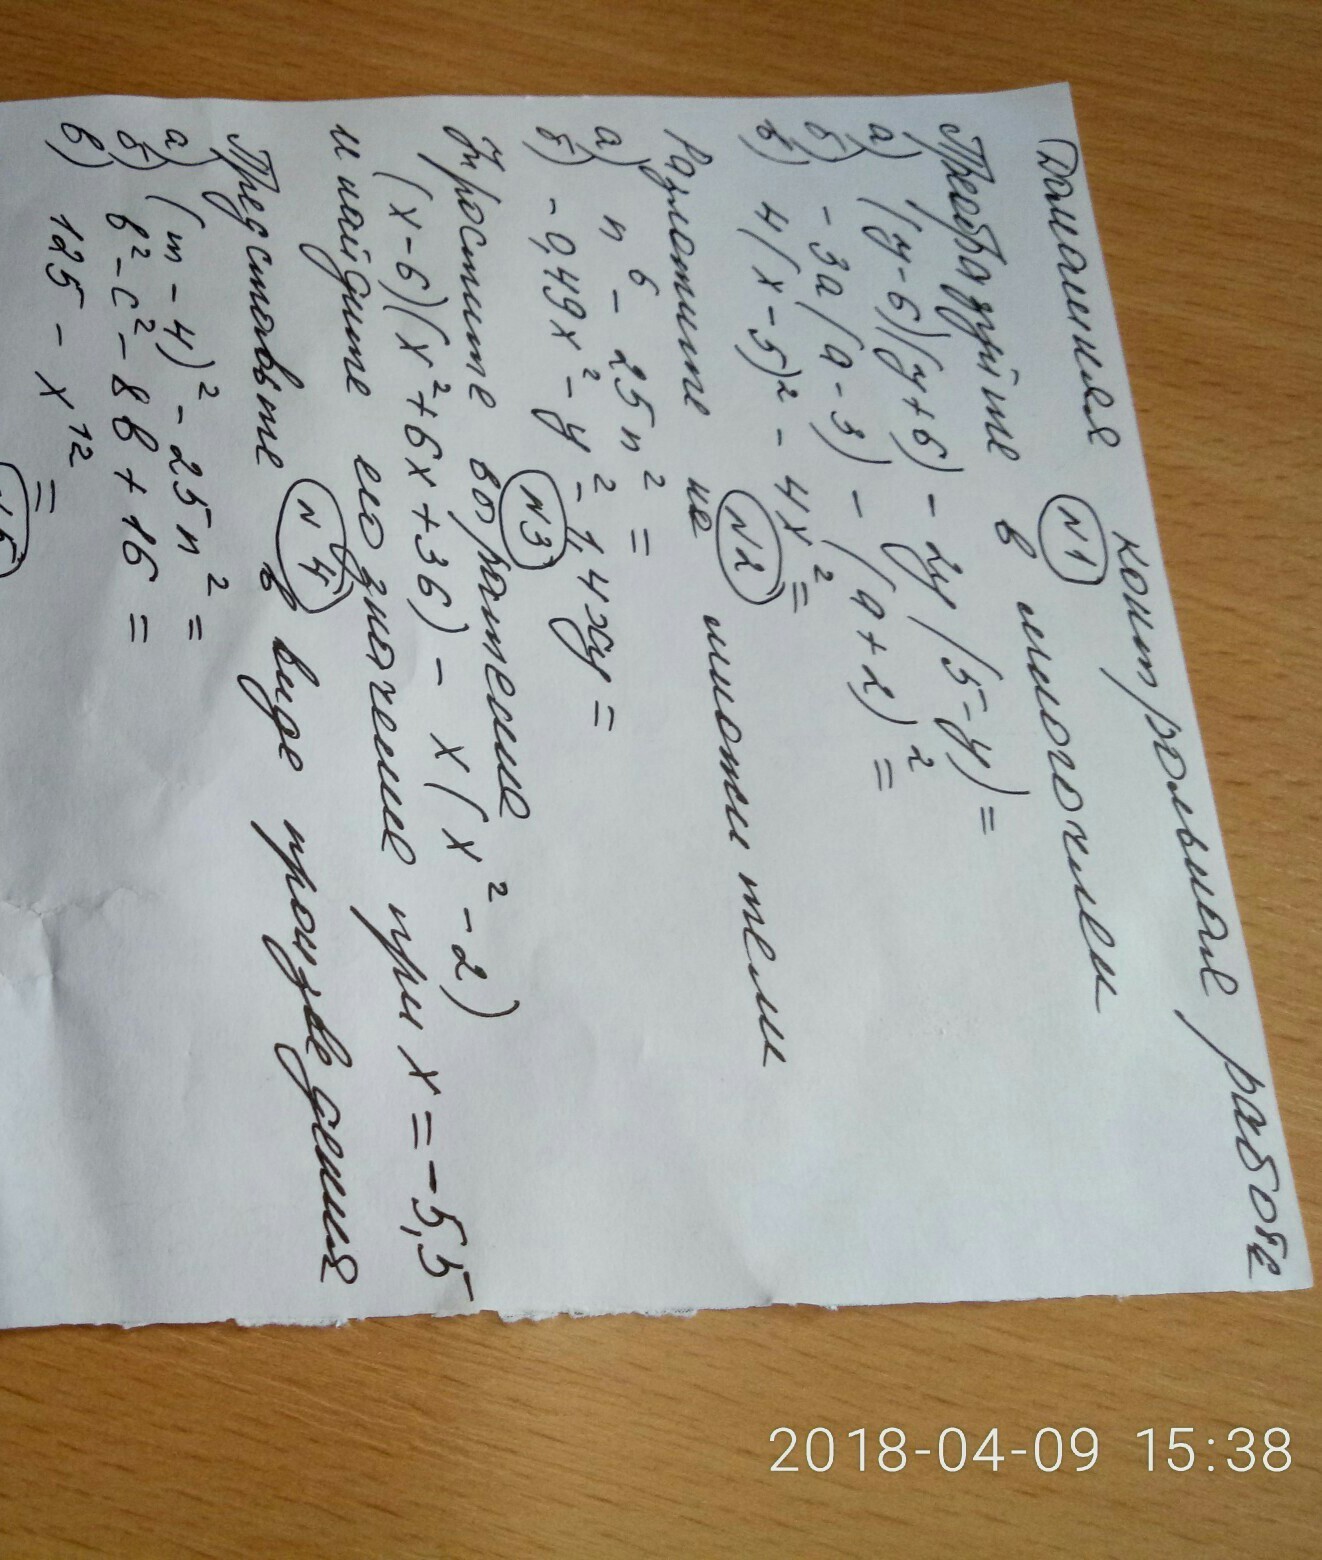 Домашняя контрольная работа
№1
Преобразуйте в многочлен
а) (y-6)(y+6) - 2y(5-y) =
б) -3a(a-3) - (a+2)² =
в) 4(x-5)² - 4x² =
№2
Разложите на множители
а) n⁶ - 25n² =
б) -0,49x² - y² - 1,4xy =
№3
Упростите выражение
(x-6)(x²+6x+36) - x(x²-2)
и найдите его значение при x = -5,5
№4
Представьте в виде произведения
а) (m-4)² - 25n² =
б) b² - c² - 8b + 16 =
в) 125 - x¹² =
2018-04-09 15:38